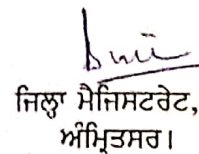 ਜਿਲ੍ਹਾ ਮੈਜਿਸਟਰੇਟ,
ਅੰਮ੍ਰਿਤਸਰ।